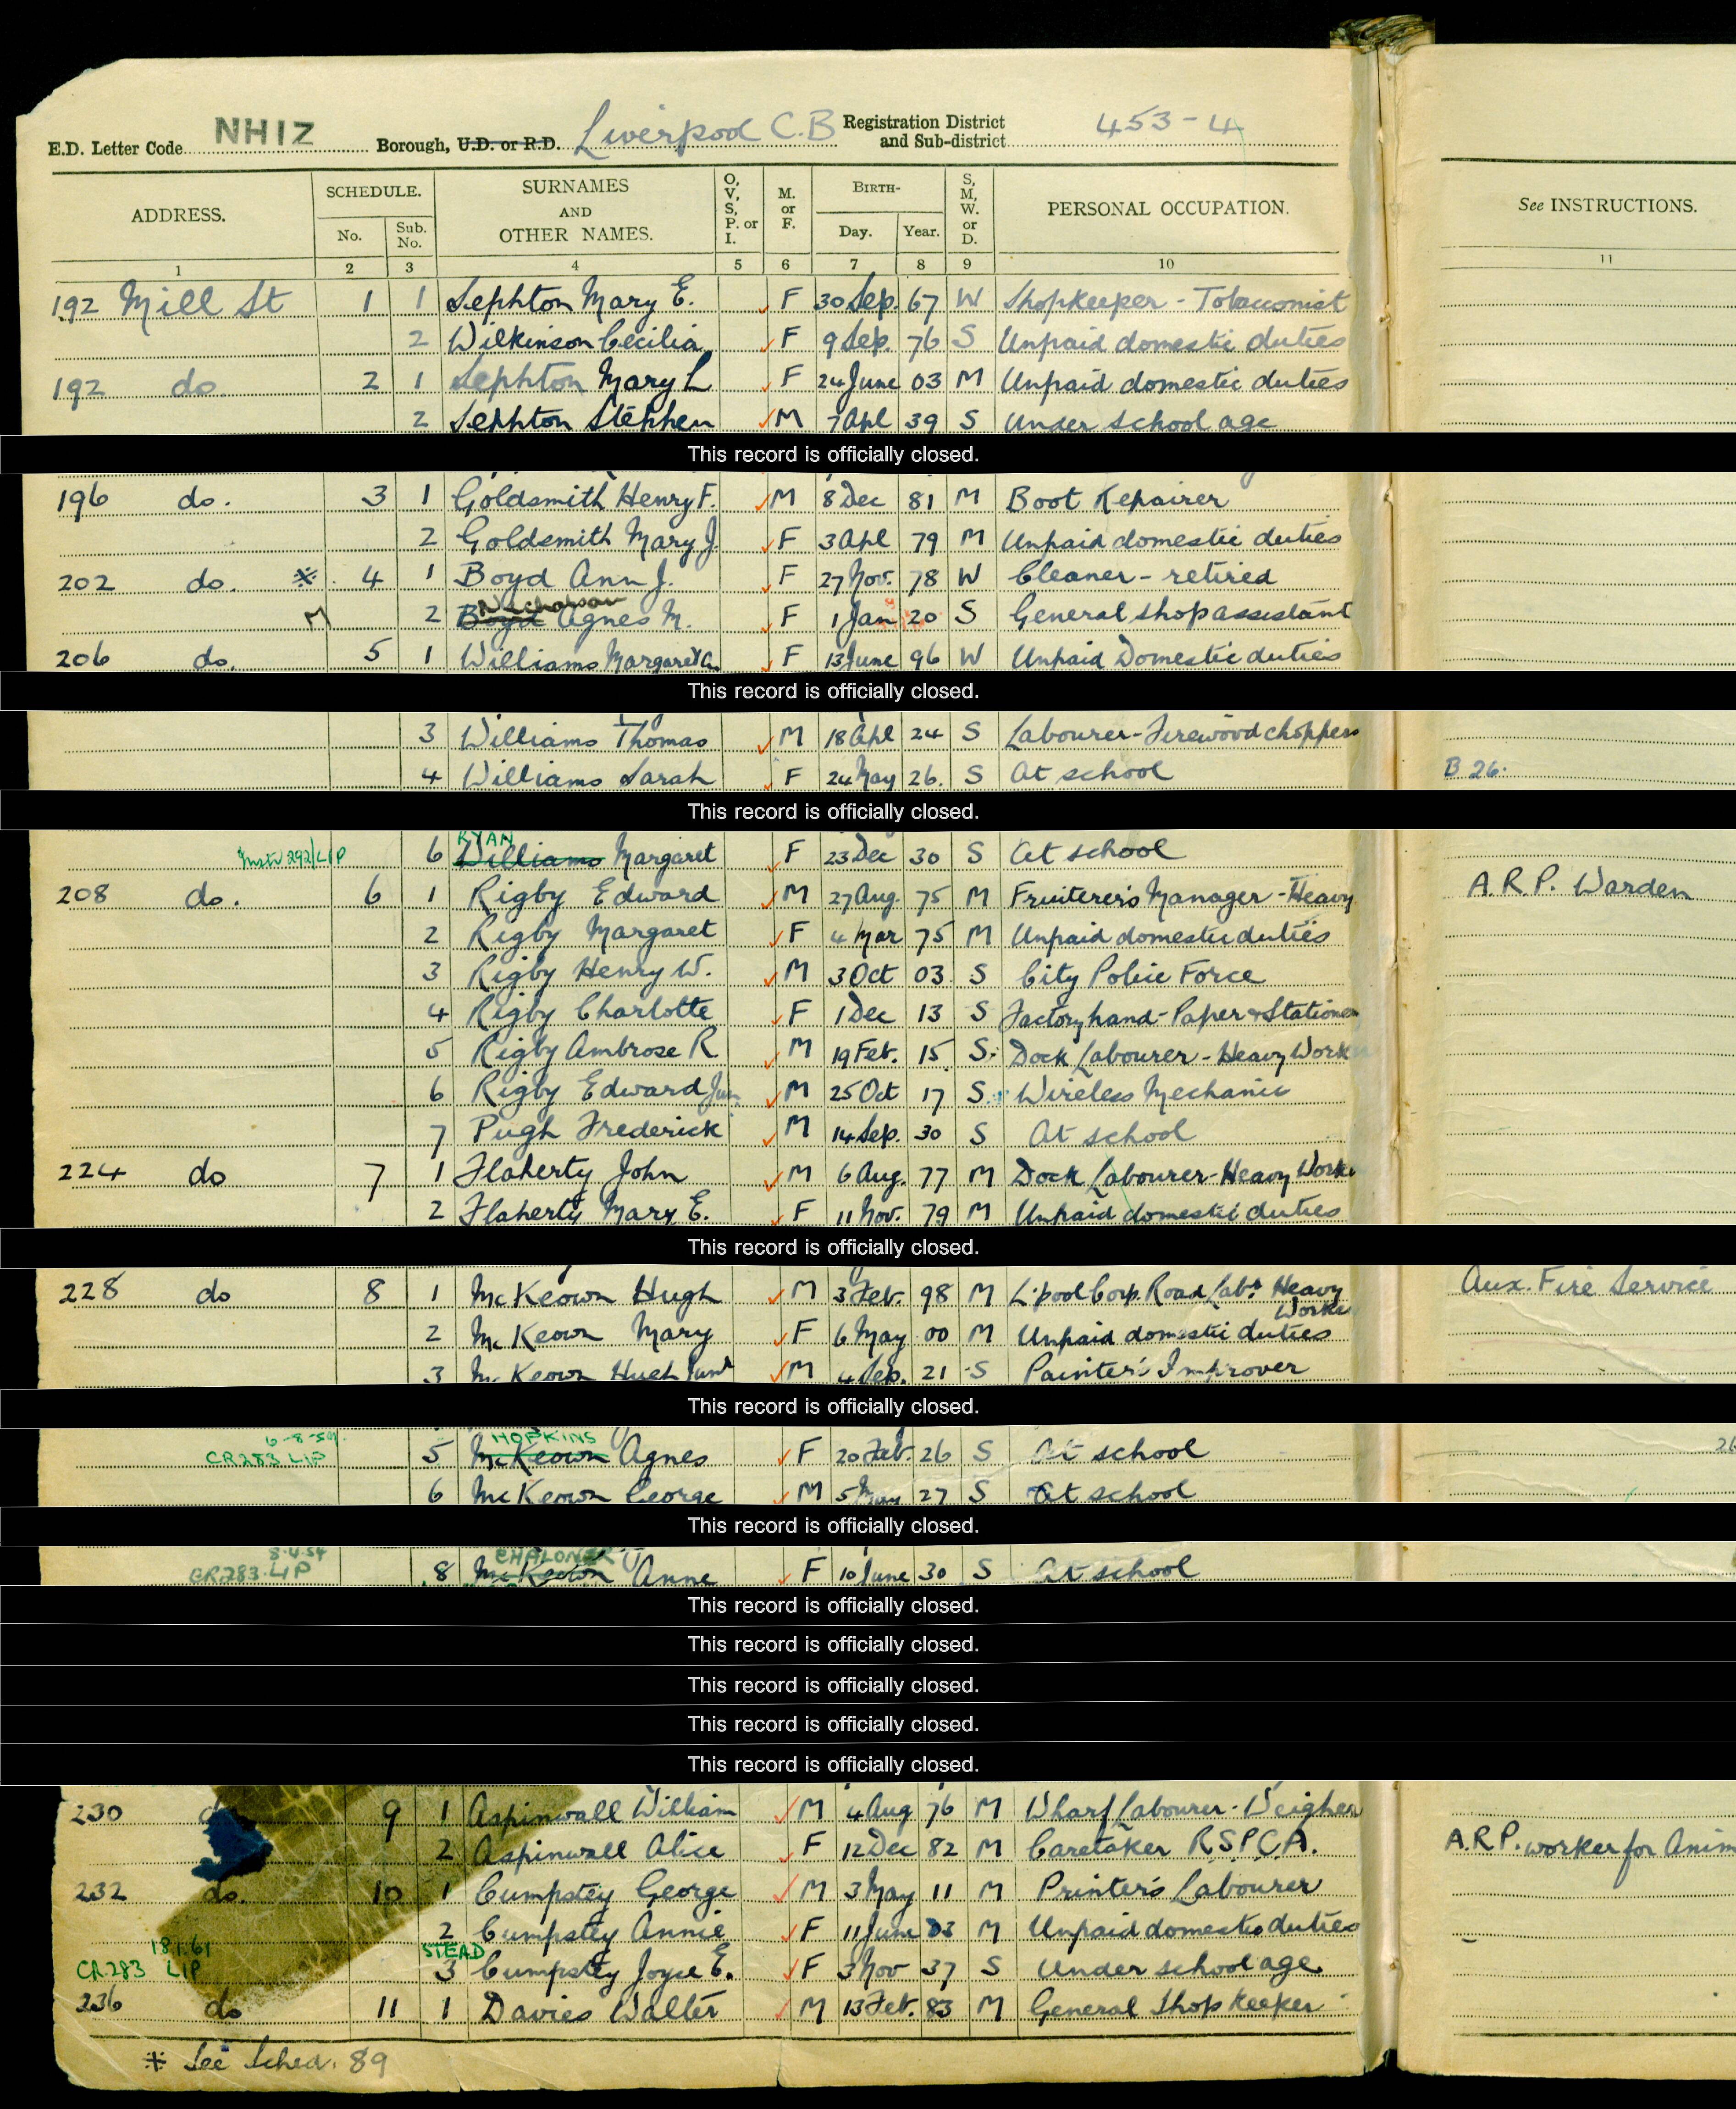 E.D. Letter Code NH1Z Borough, U.D. or R.D. Liverpool C.B Registration District and Sub-district 453-4
ADDRESS. SCHEDULE. No. Sub. No. SURNAMES AND OTHER NAMES. O, V, S, P. or I. M. or F. BIRTH- Day. Year. S, M, W. or D. PERSONAL OCCUPATION. See INSTRUCTIONS.
1 2 3 4 5 6 7 8 9 10 11
192 Mill St 1 1 Sephton Mary E. F 30 Sep. 67 W Shopkeeper - Tobacconist
2 Wilkinson Cecilia F 9 Sep. 76 S Unpaid domestic duties
192 do. 2 1 Sephton Mary L F 24 June 03 M Unpaid domestic duties
2 Sephton Stephen M 7 Apl 39 S Under school age
This record is officially closed.
196 do. 3 1 Goldsmith Henry F. M 8 Dec 81 M Boot Repairer
2 Goldsmith Mary J. F 3 Apl 79 M Unpaid domestic duties
202 do. ※ 4 1 Boyd Ann J. F 27 Nov. 78 W Cleaner - retired
M 2 Boyd Agnes M. F 1 Jan 20 S General shop assistant
206 do. 5 1 Williams Margaret A. F 13 June 96 W Unpaid Domestic duties
This record is officially closed.
3 Williams Thomas M 18 Apl 24 S Labourer - Firewood choppers
4 Williams Sarah F 24 May 26. S At school B 26.
This record is officially closed.
RYAN
292/LIP 6 Williams Margaret F 23 Dec 30 S At school
208 do. 6 1 Rigby Edward M 27 Aug. 75 M Fruiterer's Manager - Heavy A.R.P. Warden
2 Rigby Margaret F 4 Mar 75 M Unpaid domestic duties
3 Rigby Henry W. M 3 Oct 03 S City Police Force
4 Rigby Charlotte F 1 Dec 13 S Factory hand - Paper & Stationer
5 Rigby Ambrose R M 19 Feb. 15 S. Dock Labourer - Heavy Work
6 Rigby Edward Jun. M 25 Oct 17 S. Wireless Mechanic
7 Pugh Frederick M 14 Sep. 30 S At school
224 do 7 1 Flaherty John M 6 Aug. 77 M Dock Labourer - Heavy Worke
2 Flaherty Mary E. F 11 Nov. 79 M Unpaid domestic duties
This record is officially closed.
228 do 8 1 McKeown Hugh M 3 Feb. 98 M L'pool Corp. Road Labr. Heavy Worke Aux. Fire Service
2 McKeown Mary F 6 May 00 M Unpaid domestic duties
3 McKeown Hugh Junr M 4 Sep. 21 S Painter's Improver
This record is officially closed.
HOPKINS
CR283 LIP 5 McKeown Agnes F 20 Feb. 26 S At school 26
6 McKeown George M 5 May 27 S At school
This record is officially closed.
8.4.54 CHALONER
CR283 LIP 8 McKeown Anne F 10 June 30 S At school
This record is officially closed.
This record is officially closed.
This record is officially closed.
This record is officially closed.
This record is officially closed.
230 do 9 1 Aspinwall William M 4 Aug 76 M Wharf Labourer - Weigher
2 Aspinwall Alice F 12 Dec 82 M Caretaker R.S.P.C.A. A.R.P. worker for Anim
232 do. 10 1 Cumpstey George M 3 May 11 M Printer's Labourer
2 Cumpstey Annie F 11 June 03 M Unpaid domestic duties
18.1.61 STEAD
CR283 LIP 3 Cumpstey Joyce E. F 3 Nov 37 S Under school age
236 do 11 1 Davies Walter M 13 Feb. 83 M General Shop keeper
※ See Sched. 89